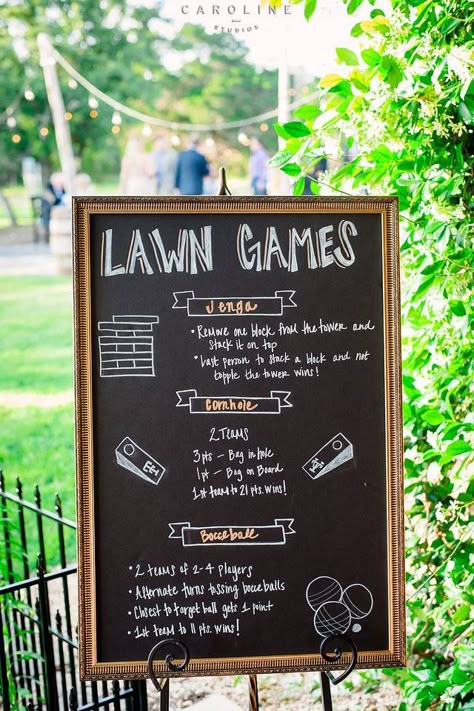 CAROLINE
STUDIOS
LAWN GAMES
Jenga
• Remove one block from the tower and
stack it on top
• Last person to stack a block and not
topple the tower wins!
Cornhole
2 Teams
3 pts - Bag in hole
1 pt - Bag on Board
1st team to 21 pts. wins!
Bocce Ball
• 2 teams of 2-4 players
• Alternate turns tossing bocce balls
• Closest to target ball gets 1 point
• 1st team to 11 pts. wins!